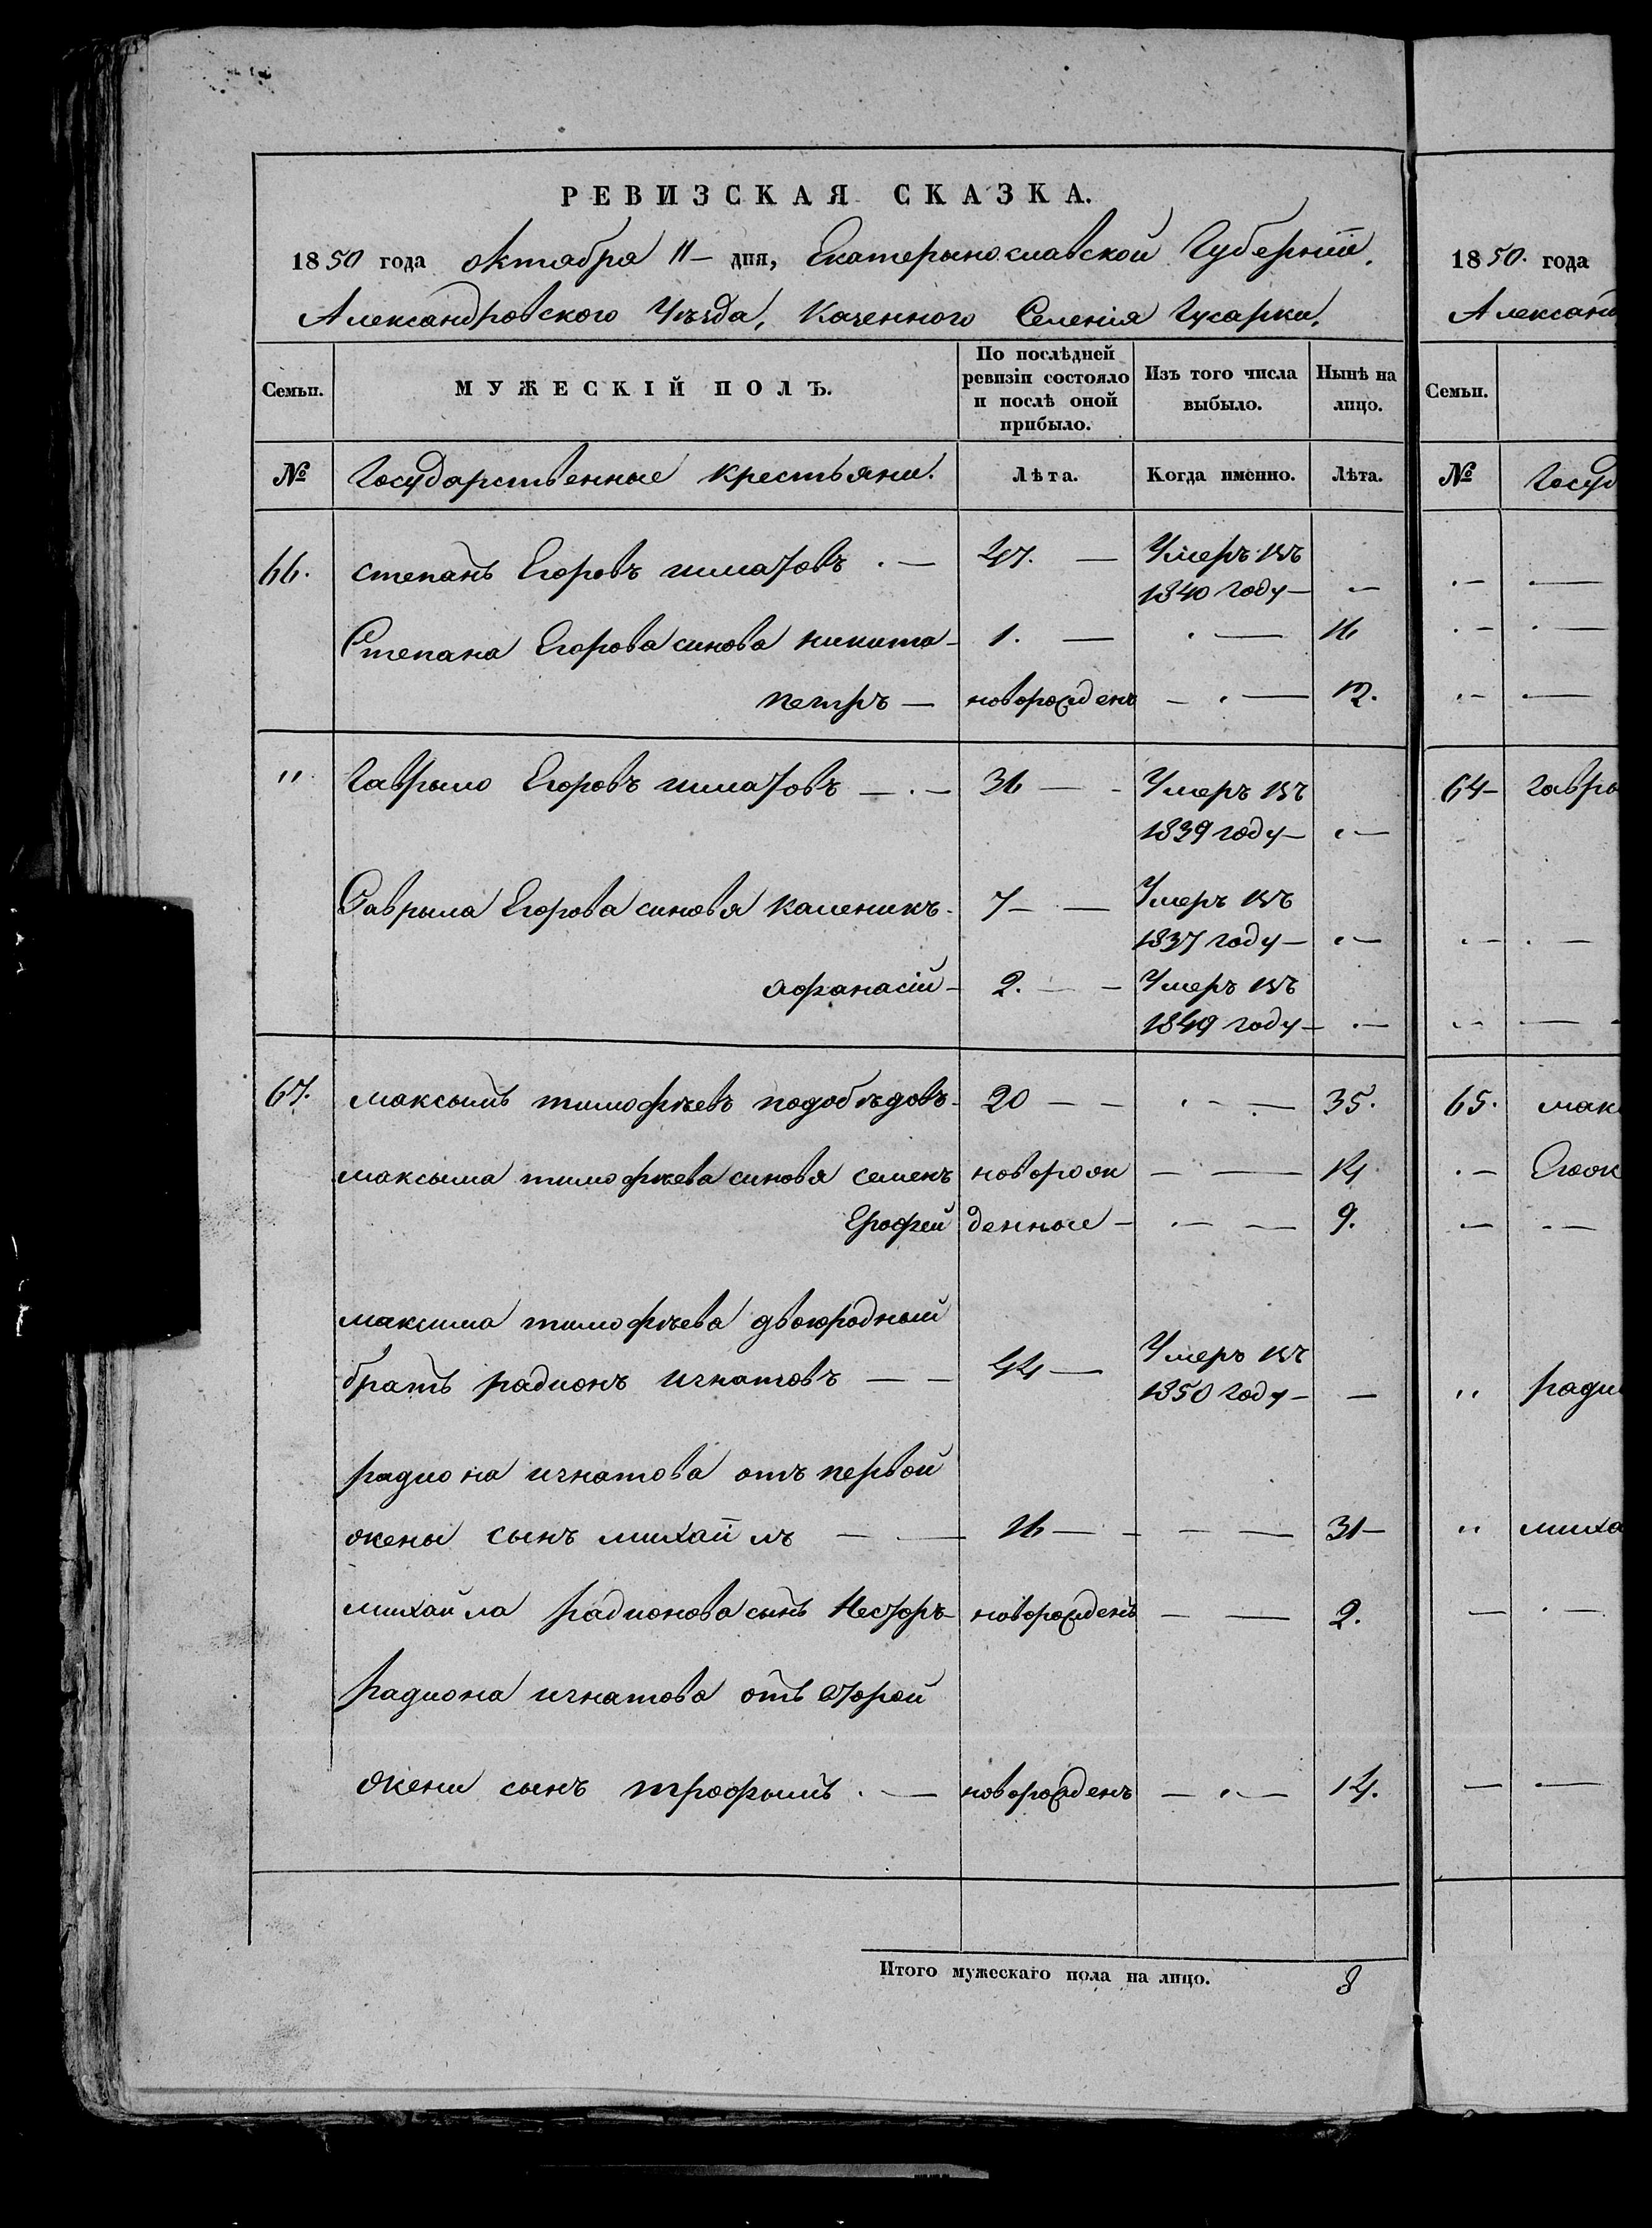 РЕВИЗСКАЯ СКАЗКА.
1850 года октабра 11 – дня, Екатерынославской Губерніи,
Александровского Уѣзда, Казенного Селенія Гусарки.
Семьи. МУЖЕСКІЙ ПОЛЪ. По послѣдней ревизіи состояло и послѣ оной прибыло. Изъ того числа выбыло. Нынѣ на лицо.
№ Государственные крестьяни. Лѣта. Когда именно. Лѣта.
66. степанъ Егоровъ 47. — Умеръ въ
1840 году — –
Степана Егорова синова никита – 1. — . — 16
петръ — новорожденъ – . — 12.
" Гаврыло Егоровъ — . — 31 — - Умеръ въ
1839 году — . —
Гаврыла Егорова синовя каленикъ . 7 — — Умеръ въ
1837 году — . —
афанасій – 2. — – Умеръ въ
1849 году — . —
67. максымъ тимофѣевъ подобѣдовъ – 20 — – . – . — 35.
максыма тимофѣева синовя семенъ новорож – — 14
Ерофей денные – . — — 9.
максима тимофѣева двоюродный
братъ радионъ игнатовъ — — 44 — Умеръ въ
1850 году — —
радиона игнатова отъ первой
жены сынъ михайлъ — — 16 — - – — 31 –
михайла радионова сынъ Несторъ – новорожденъ – — 2.
радиона игнатова отъ второй
жени сынъ трофымъ . — новорожденъ – . — 14.
Итого мужескаго пола на лицо. 8
1850. года
Александ
Семьи.
№ Госуд
64 – гавры
65. мак
. – Егож
" ради
" миха